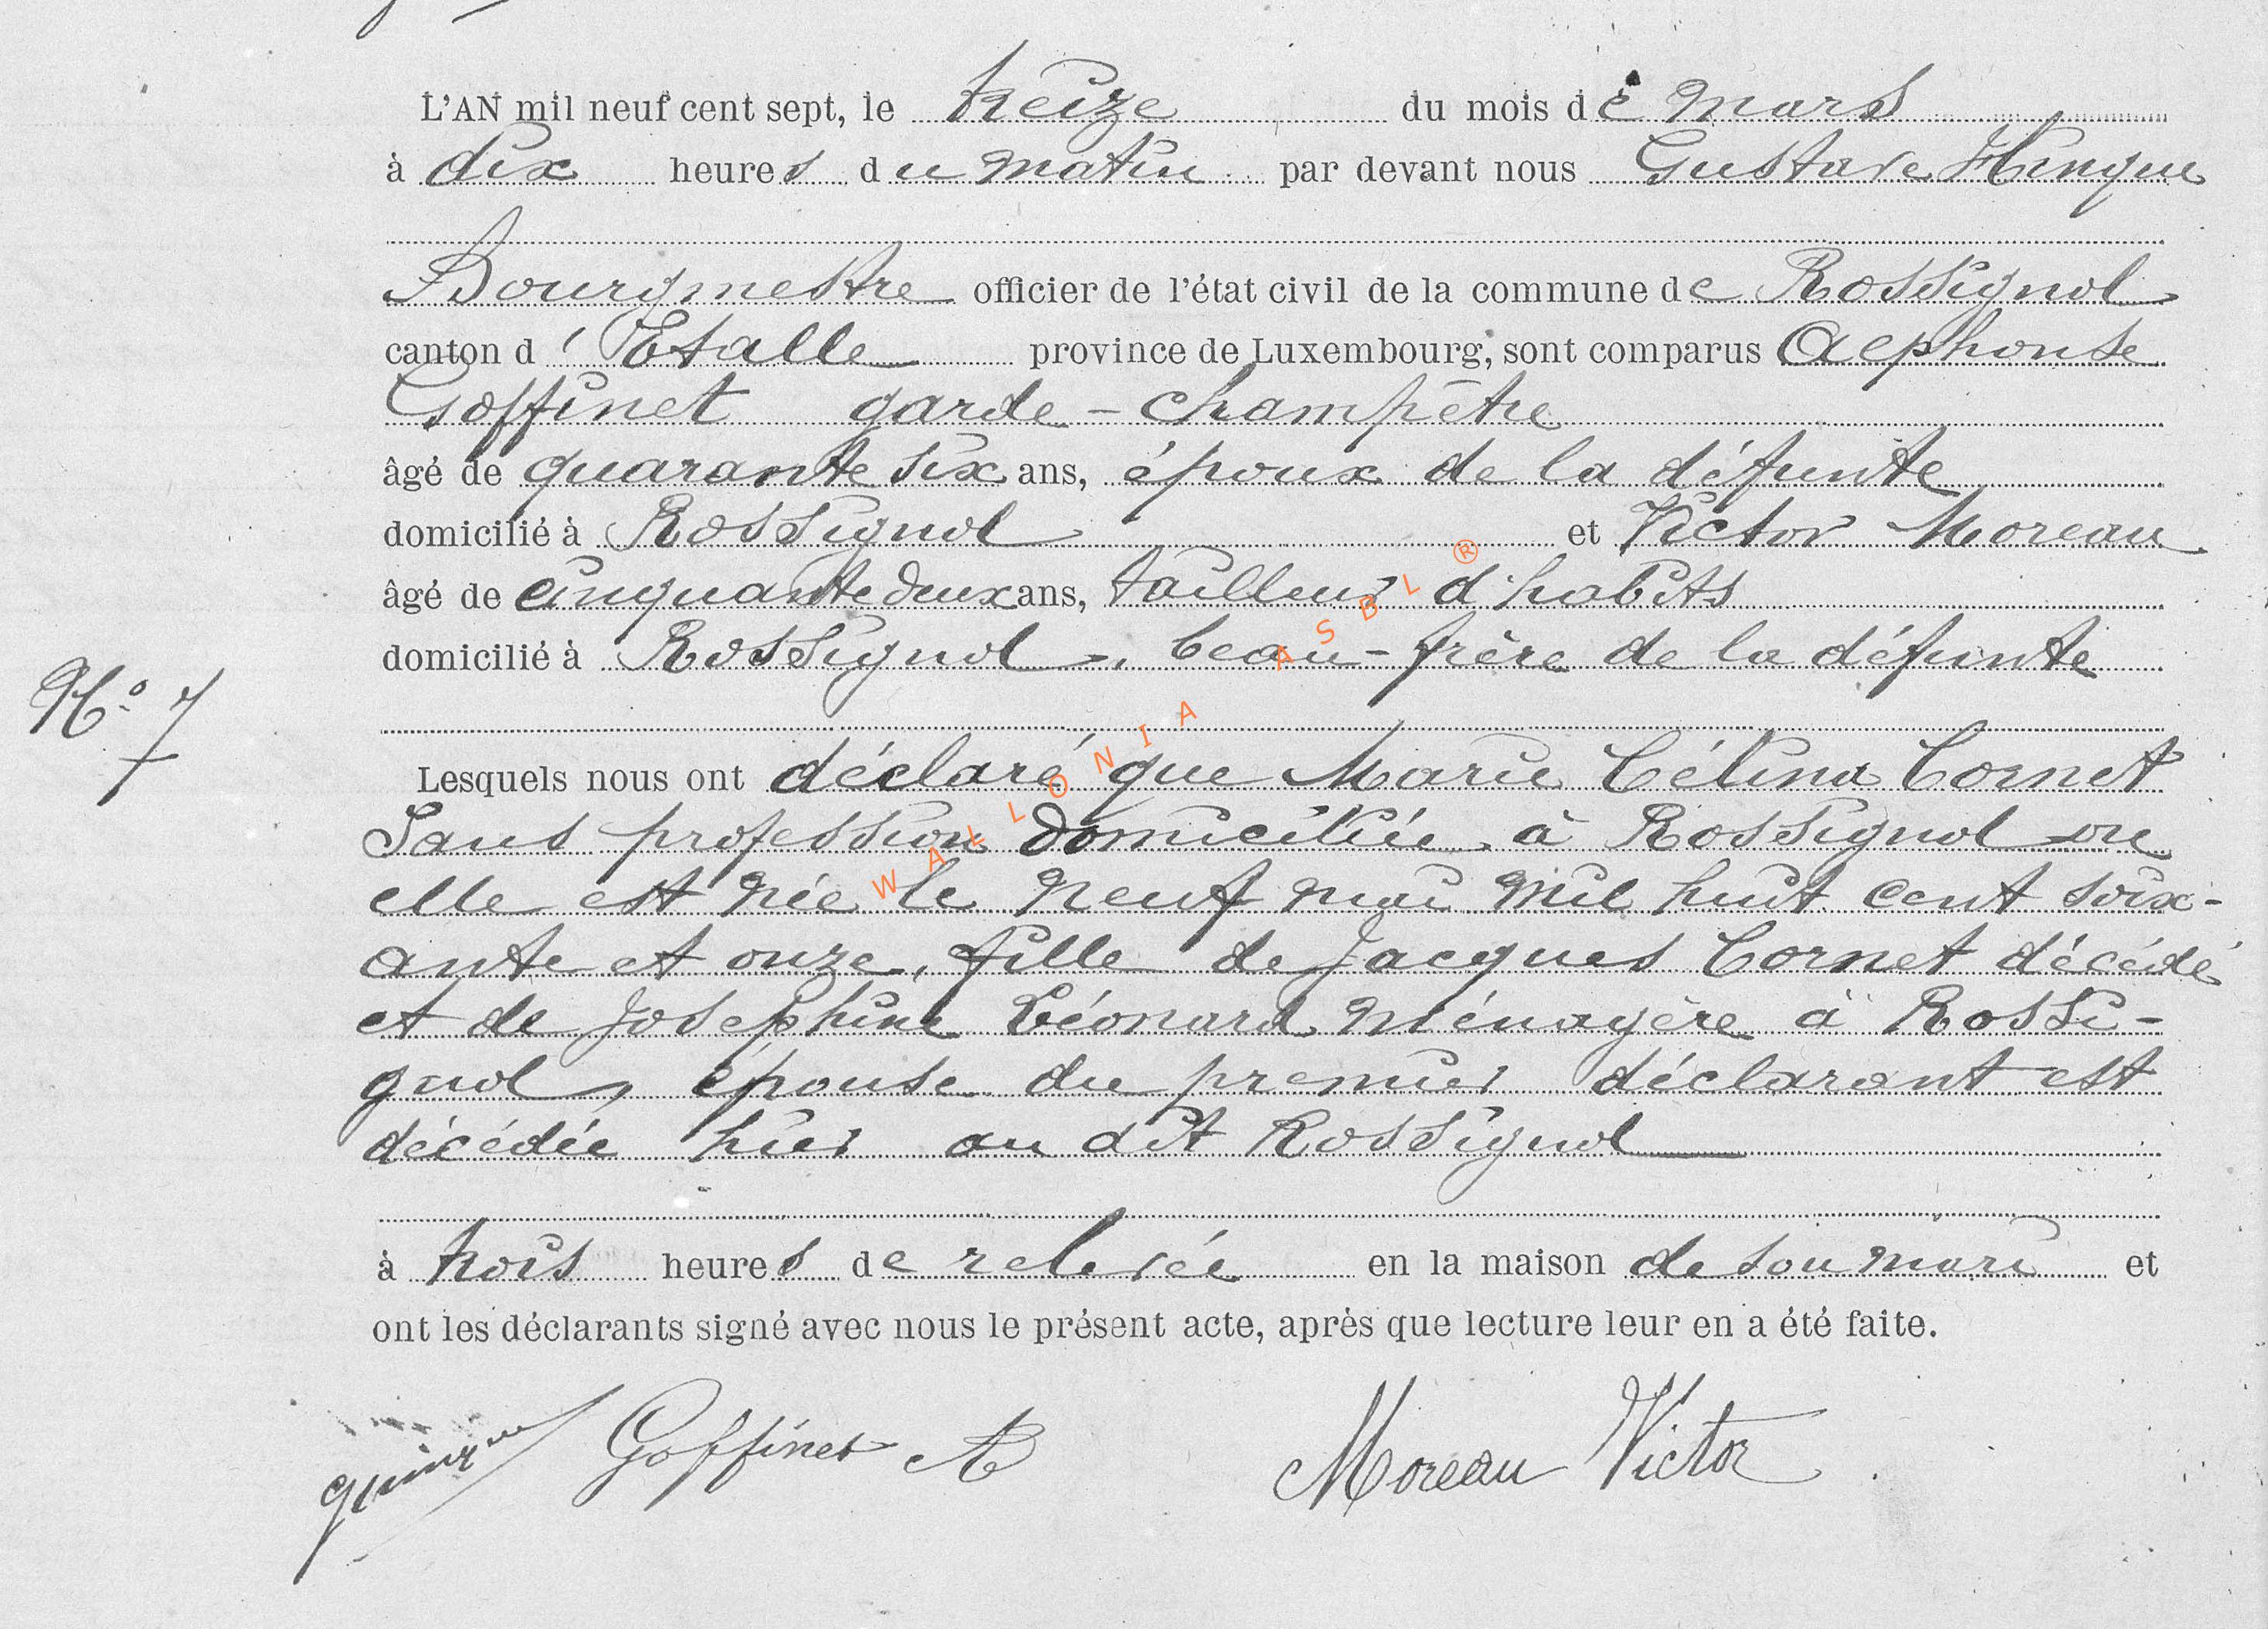 L'AN mil neuf cent sept, le treize du mois de Mars
à dix heures du matin par devant nous Gustave Hinque
Bourgmestre officier de l'état civil de la commune de Rossignol
canton d'Etalle province de Luxembourg, sont comparus Alphonse
Goffinet garde-champêtre
âgé de quarante six ans, époux de la défunte
domicilié à Rossignol et Victor Moreau
âgé de cinquante deux ans, tailleur d'habits
domicilié à Rossignol, beau-frère de la défunte
N° 7
Lesquels nous ont déclaré que Marie Célina Cornet
Sans profession domiciliée à Rossignol où
elle est née le neuf mai mil huit cent soix-
ante et onze, fille de Jacques Cornet décédé
et de Joséphine Léonard ménagère à Rossi-
gnol, épouse du premier déclarant est
décédée hier au dit Rossignol
à trois heures de relevée en la maison de son mari et
ont les déclarants signé avec nous le présent acte, après que lecture leur en a été faite.
Goffinet A Moreau Victor
WALLONIA ASBL ®